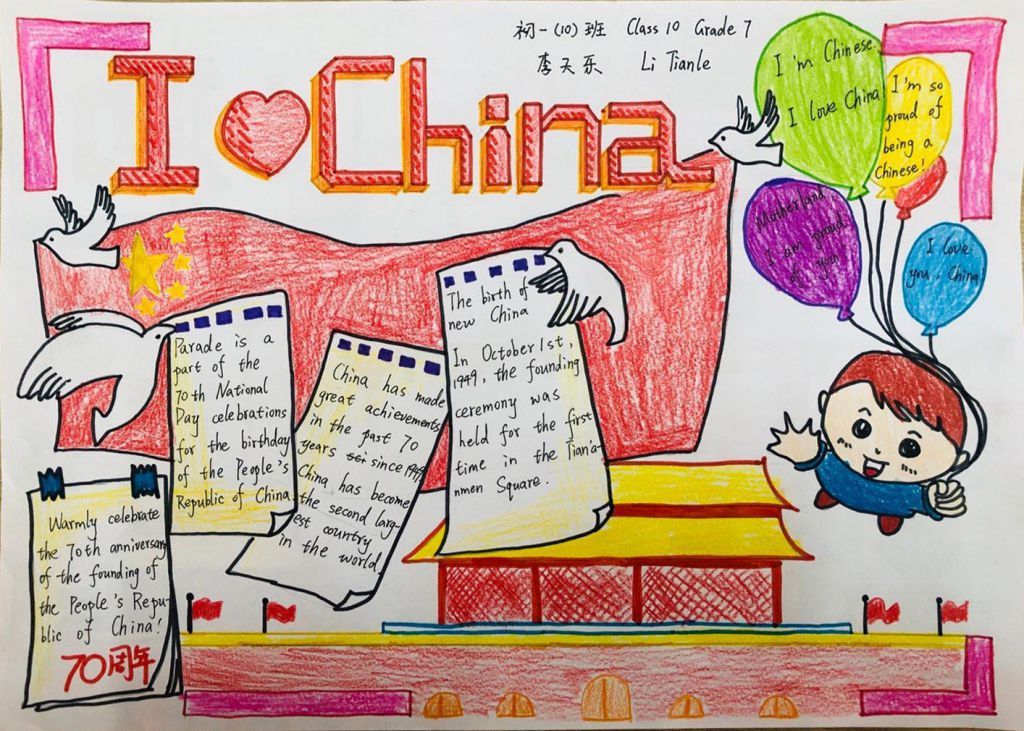 初一(10)班 Class 10 Grade 7
李天乐 Li Tianle
I China
I'm Chinese.
I love China
I'm so
proud of
being a
Chinese!
Motherland,
I am proud
of you
I love
you, China
Parade is a
part of the
70th National
Day celebrations
for the birthday
of the People's
Republic of China
China has made
great achievements
in the past 70
years since 1949
China has become
the second larg-
est country
in the world
The birth of
new China
In October 1st,
1949, the founding
ceremony was
held for the first
time in the Tian'a-
nmen Square.
Warmly celebrate
the 70th anniversary
of the founding of
the People's Repu-
blic of China!
70周年